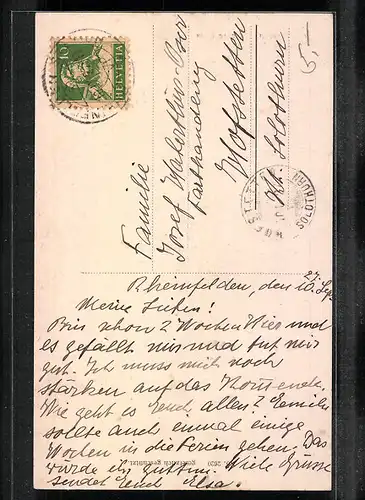 10
HELVETIA
5.-
Familie
Josef
Hofstetten
Kt. Solothurn
SOLOTHURN
Rheinfelden, den 10. Sept.
27.
Meine Lieben!
Bin schon 2 Wochen hier und
es gefällt mir und tut mir
gut. Ich muss mich noch
stärken auf das Kommende.
Wie geht es Euch allen? Emilie
sollte auch einmal einige
Wochen in die Ferien gehen. Das
würde ihr guttun. Viele Grüsse
sendet Euch Elsa.
gesetzlich geschützt 2020